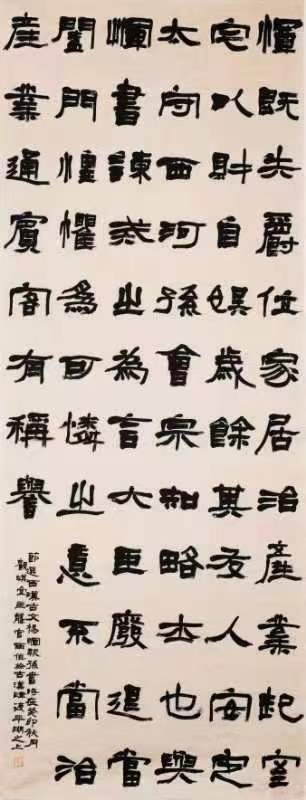 惲既失爵位家居治產業起室
宅以財自娛歲餘其友人安定
太守西河孫會宗知略士也與
惲書諫戒之為言大臣廢退當
闔門惶懼為可憐之意不當治
產業通賓客有稱譽
節選西漢古文楊惲報孫書癸卯秋月
平湖之上